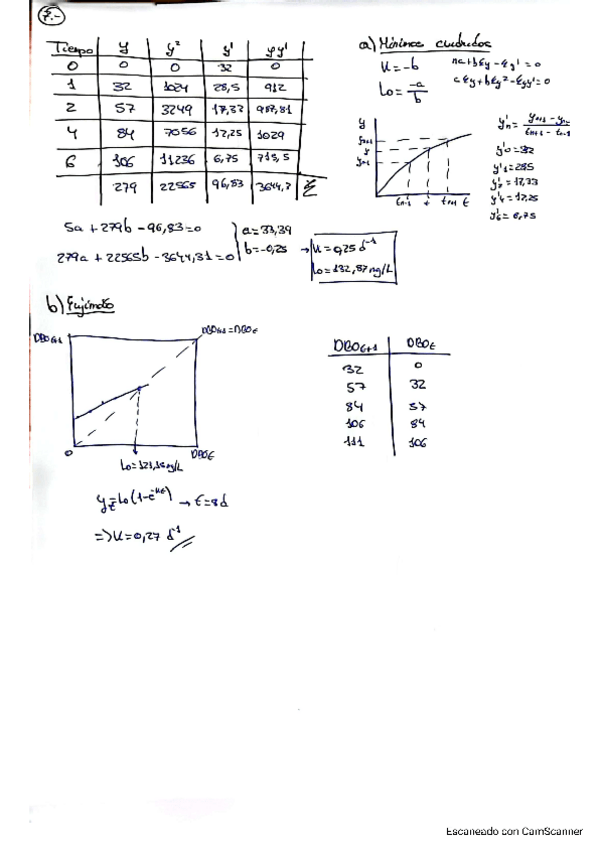 7.-
Tiempo y y² y' yy'
0 0 0 32 0
1 32 1024 28,5 912
2 57 3249 17,33 987,81
4 84 7056 12,25 1029
6 106 11236 6,75 715,5
279 22565 96,83 3644,3 Σ
a) Mínimos cuadrados
K = -b
Lo = -a/b
na + bΣy - Σy' = 0
aΣy + bΣy² - Σyy' = 0
y
yn+1
y
yn-1
tn-1 t tn+1 t
y'n = yn+1 - yn-1 / tn+1 - tn-1
y'0 = 32
y'1 = 28,5
y'2 = 17,33
y'4 = 12,25
y'6 = 6,75
5a + 279b - 96,83 = 0
279a + 22565b - 3644,31 = 0
a = 33,39
b = -0,25
→ K = 0,25 d⁻¹
Lo = 132,87 mg/L
b) Fujimoto
DBOt+1
DBOt+1 = DBOt
0
DBOt
Lo = 121,16 mg/L
DBOt+1 DBOt
32 0
57 32
84 57
106 84
111 106
yt = Lo (1 - e⁻ᴷᵗ) → t = 8d
=> K = 0,27 d⁻¹
Escaneado con CamScanner